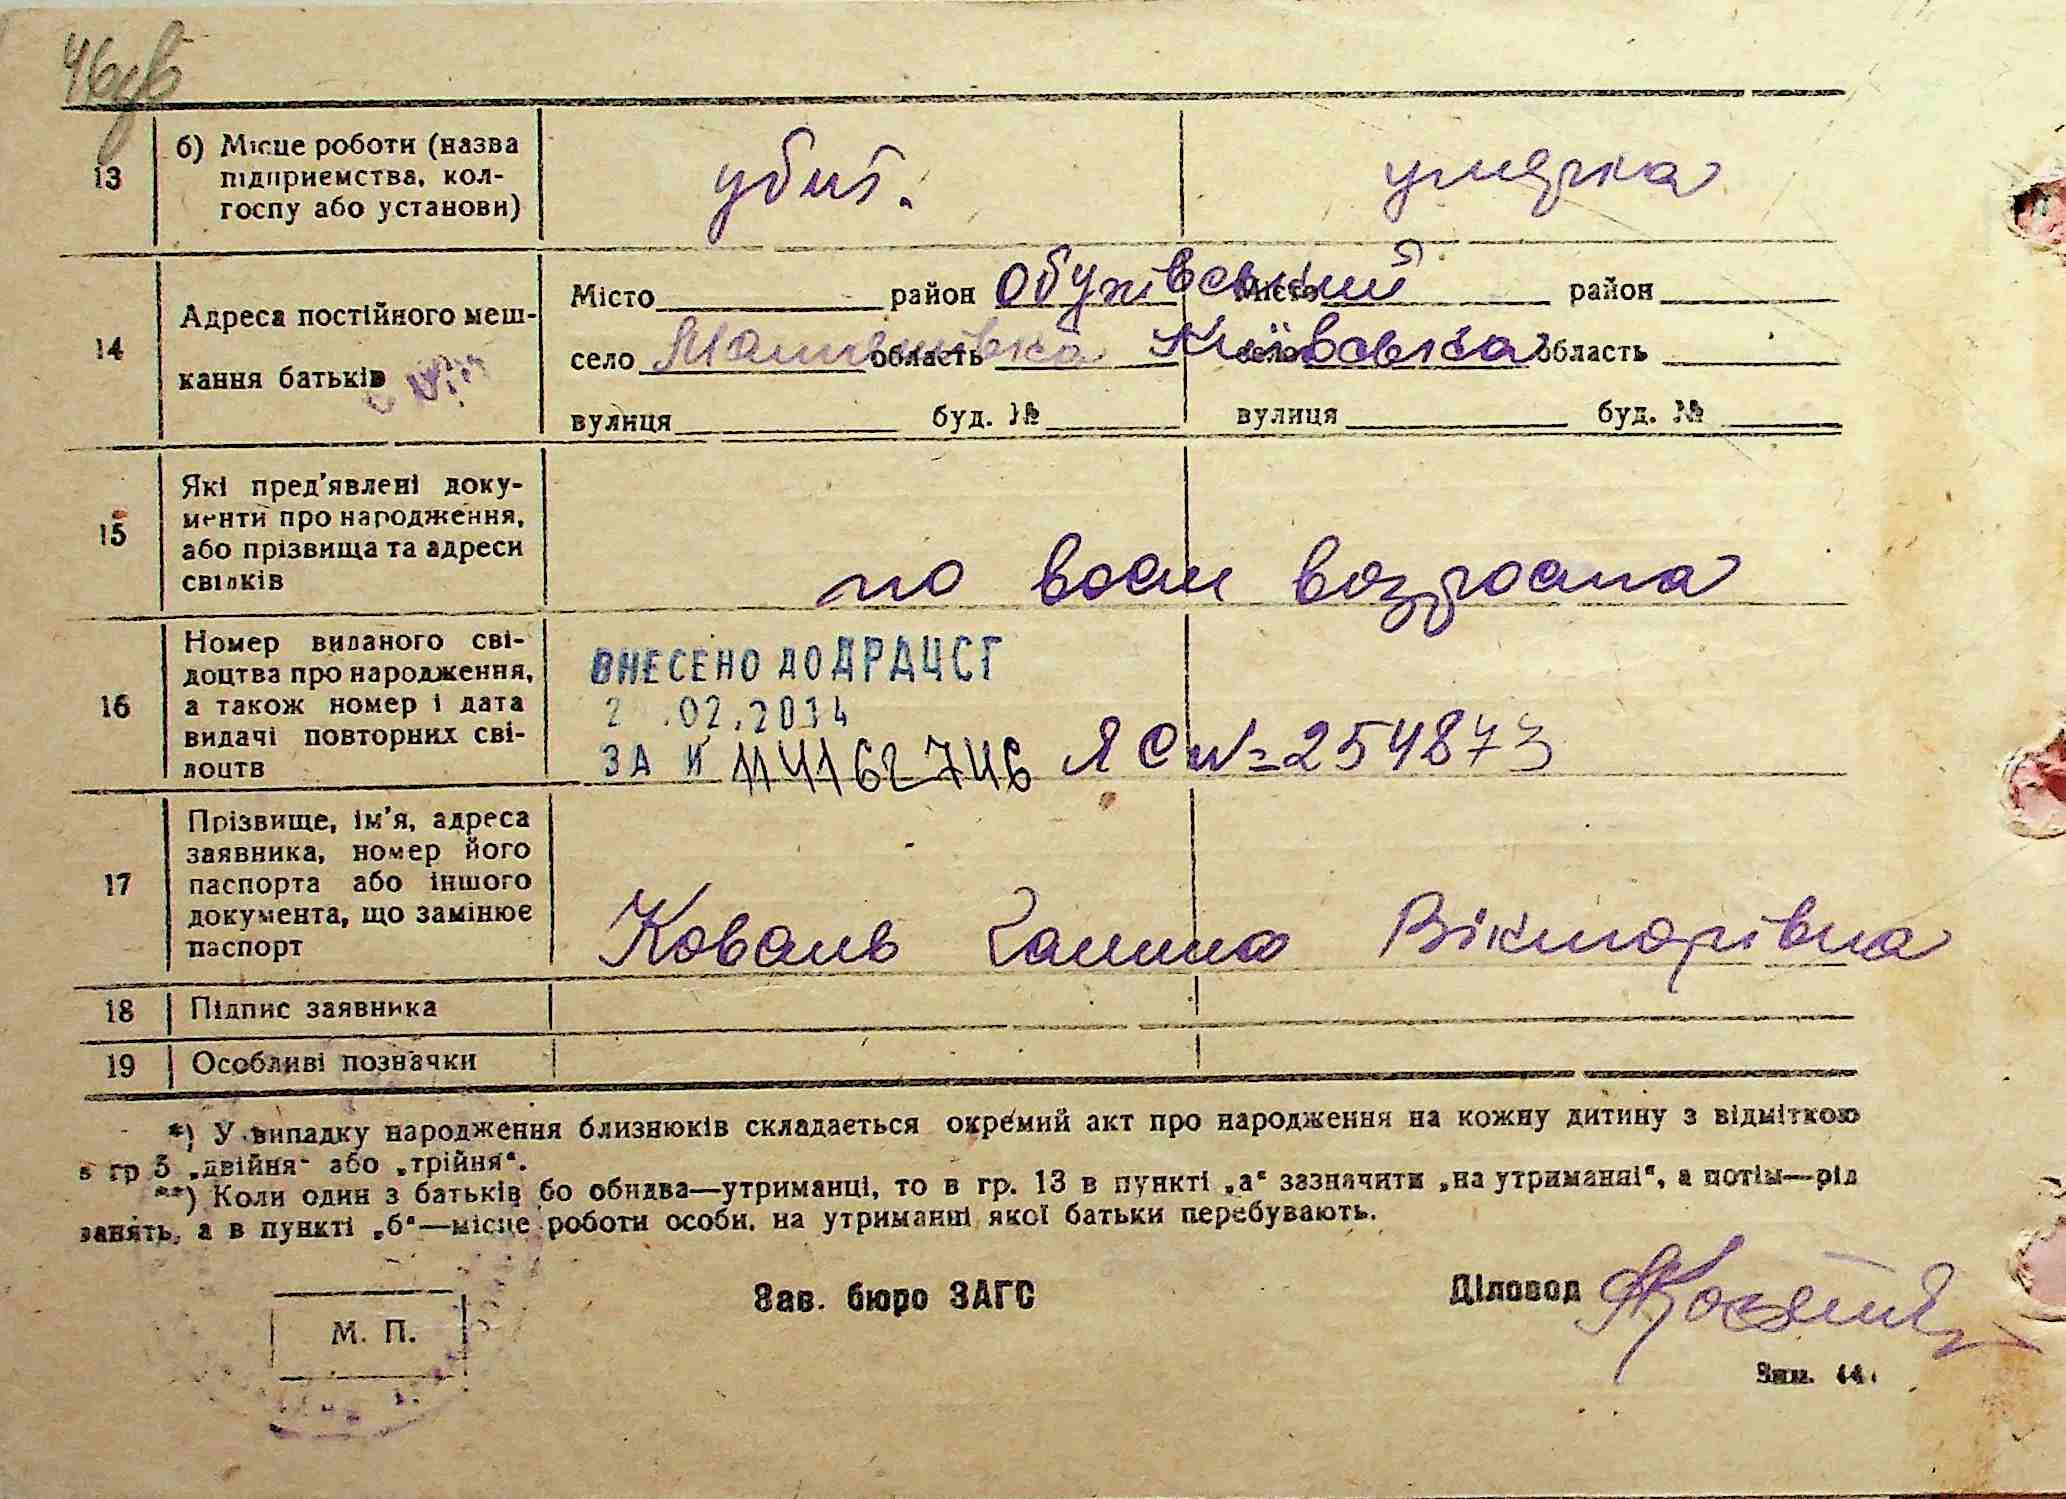 13 б) Місце роботи (назва
підприємства, кол-
госпу або установи)
убит.
14 Адреса постійного меш-
кання батьків
Місто район Обухівський Місто район
село область Київська село область
вулиця буд. № вулиця буд. №
15 Які пред'явлені доку-
менти про народження,
або прізвища та адреси
свідків
по возроста
16 Номер виданого сві-
доцтва про народження,
а також номер і дата
видачі повторних сві-
доцтв
ВНЕСЕНО ДО ДРАЦСГ
2 .02.2014
ЗА № 114162746 ЯС № 254873
17 Прізвище, ім'я, адреса
заявника, номер його
паспорта або іншого
документа, що замінює
паспорт
Коваль Галина Вікторівна
18 Підпис заявника
19 Особливі позначки
*) У випадку народження близнюків складається окремий акт про народження на кожну дитину з відміткою
в гр 5 „двійня“ або „трійня“.
**) Коли один з батьків бо обидва—утриманці, то в гр. 13 в пункті „а“ зазначити „на утриманні“, а потім—рід
занять, а в пункті „б“—місце роботи особи, на утриманні якої батьки перебувають.
М. П.
Зав. бюро ЗАГС
Діловод
Зам. 44